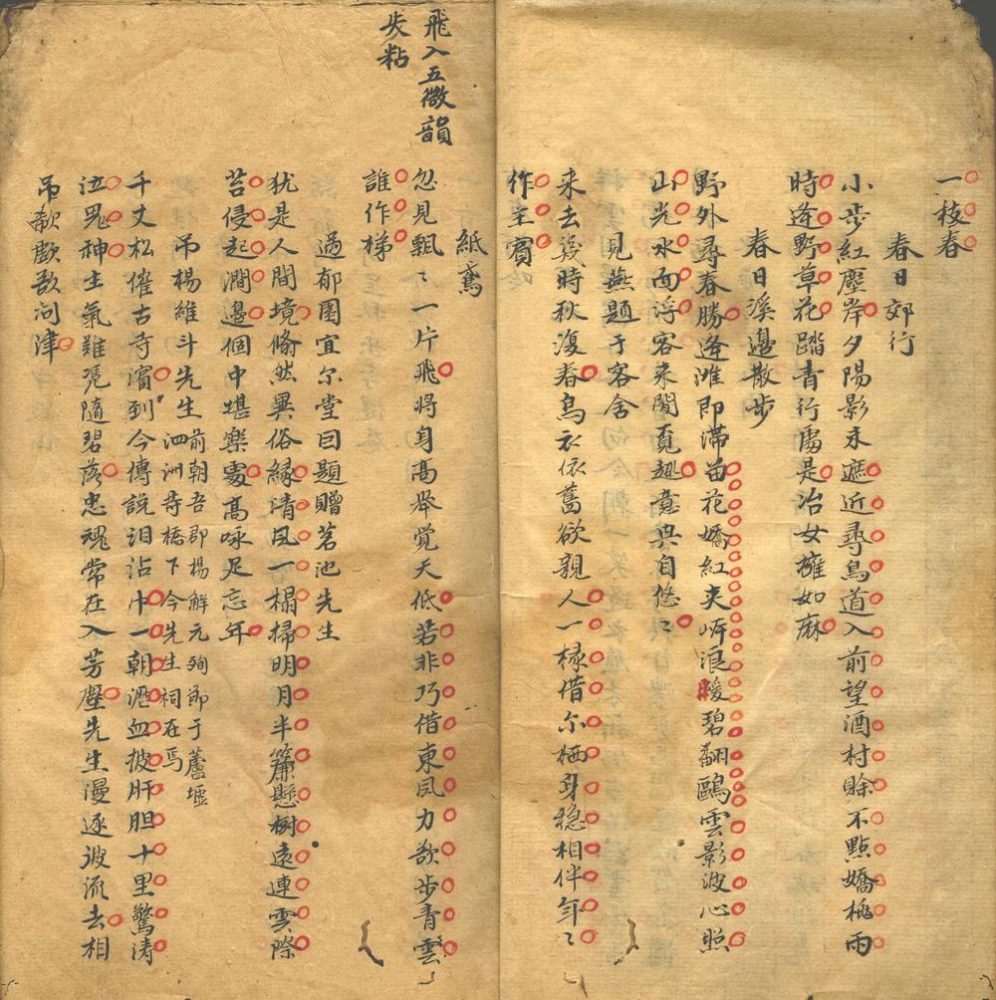 一枝春
春日郊行
小步紅塵岸夕陽影未遮近尋鳥道入前望酒村賒不點嬌桃雨
時逢野草花踏青行處是冶女擁如麻
春日溪邊散步
野外尋春勝逢滩即滯留花嬌紅夾岸浪暖碧翻鷗雲影波心照
山光水面浮客來閒覓趣意興自悠〻
見燕題于客舍
来去幾時秋復春烏衣依舊欲親人一椽借尔栖身穩相伴年〻
作主賓
飛入五微韻
失粘
紙鳶
忽見飄〻一片飛將身高舉覚天低若非巧借東風力欲步青雲
誰作梯
過郁園宜尔堂囙題贈茗池先生
犹是人間境翛然異俗縁清风一榻掃明月半簾懸樹遠連雲際
苔侵起澗邊個中堪樂處高咏足忘年
吊楊維斗先生前朝吾郡楊解元殉節于蘆墟
泗洲寺橋下今先生祠在焉
千丈松催古寺濱到今傳說泪沾巾一朝洒血披肝胆十里驚濤
泣鬼神生氣難凭隨碧落忠魂常在入芳塵先生漫逐波流去相
吊欷歔敢问津